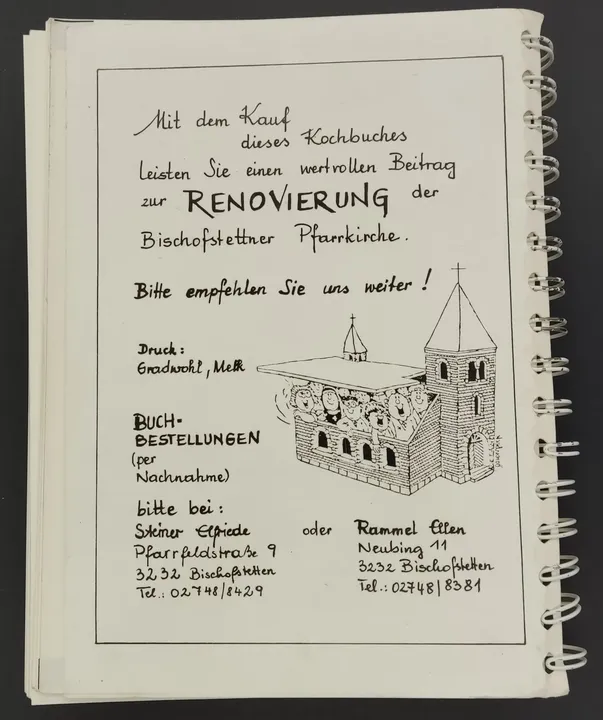 Mit dem Kauf
dieses Kochbuches
leisten Sie einen wertvollen Beitrag
zur RENOVIERUNG der
Bischofstettner Pfarrkirche.
Bitte empfehlen Sie uns weiter!
Druck:
Gradwohl, Melk
BUCH-
BESTELLUNGEN
(per
Nachnahme)
bitte bei:
Steiner Elfriede oder Rammel Ellen
Pfarrfeldstraße 9 Neubing 11
3232 Bischofstetten 3232 Bischofstetten
Tel.: 02748/8429 Tel.: 02748/8381